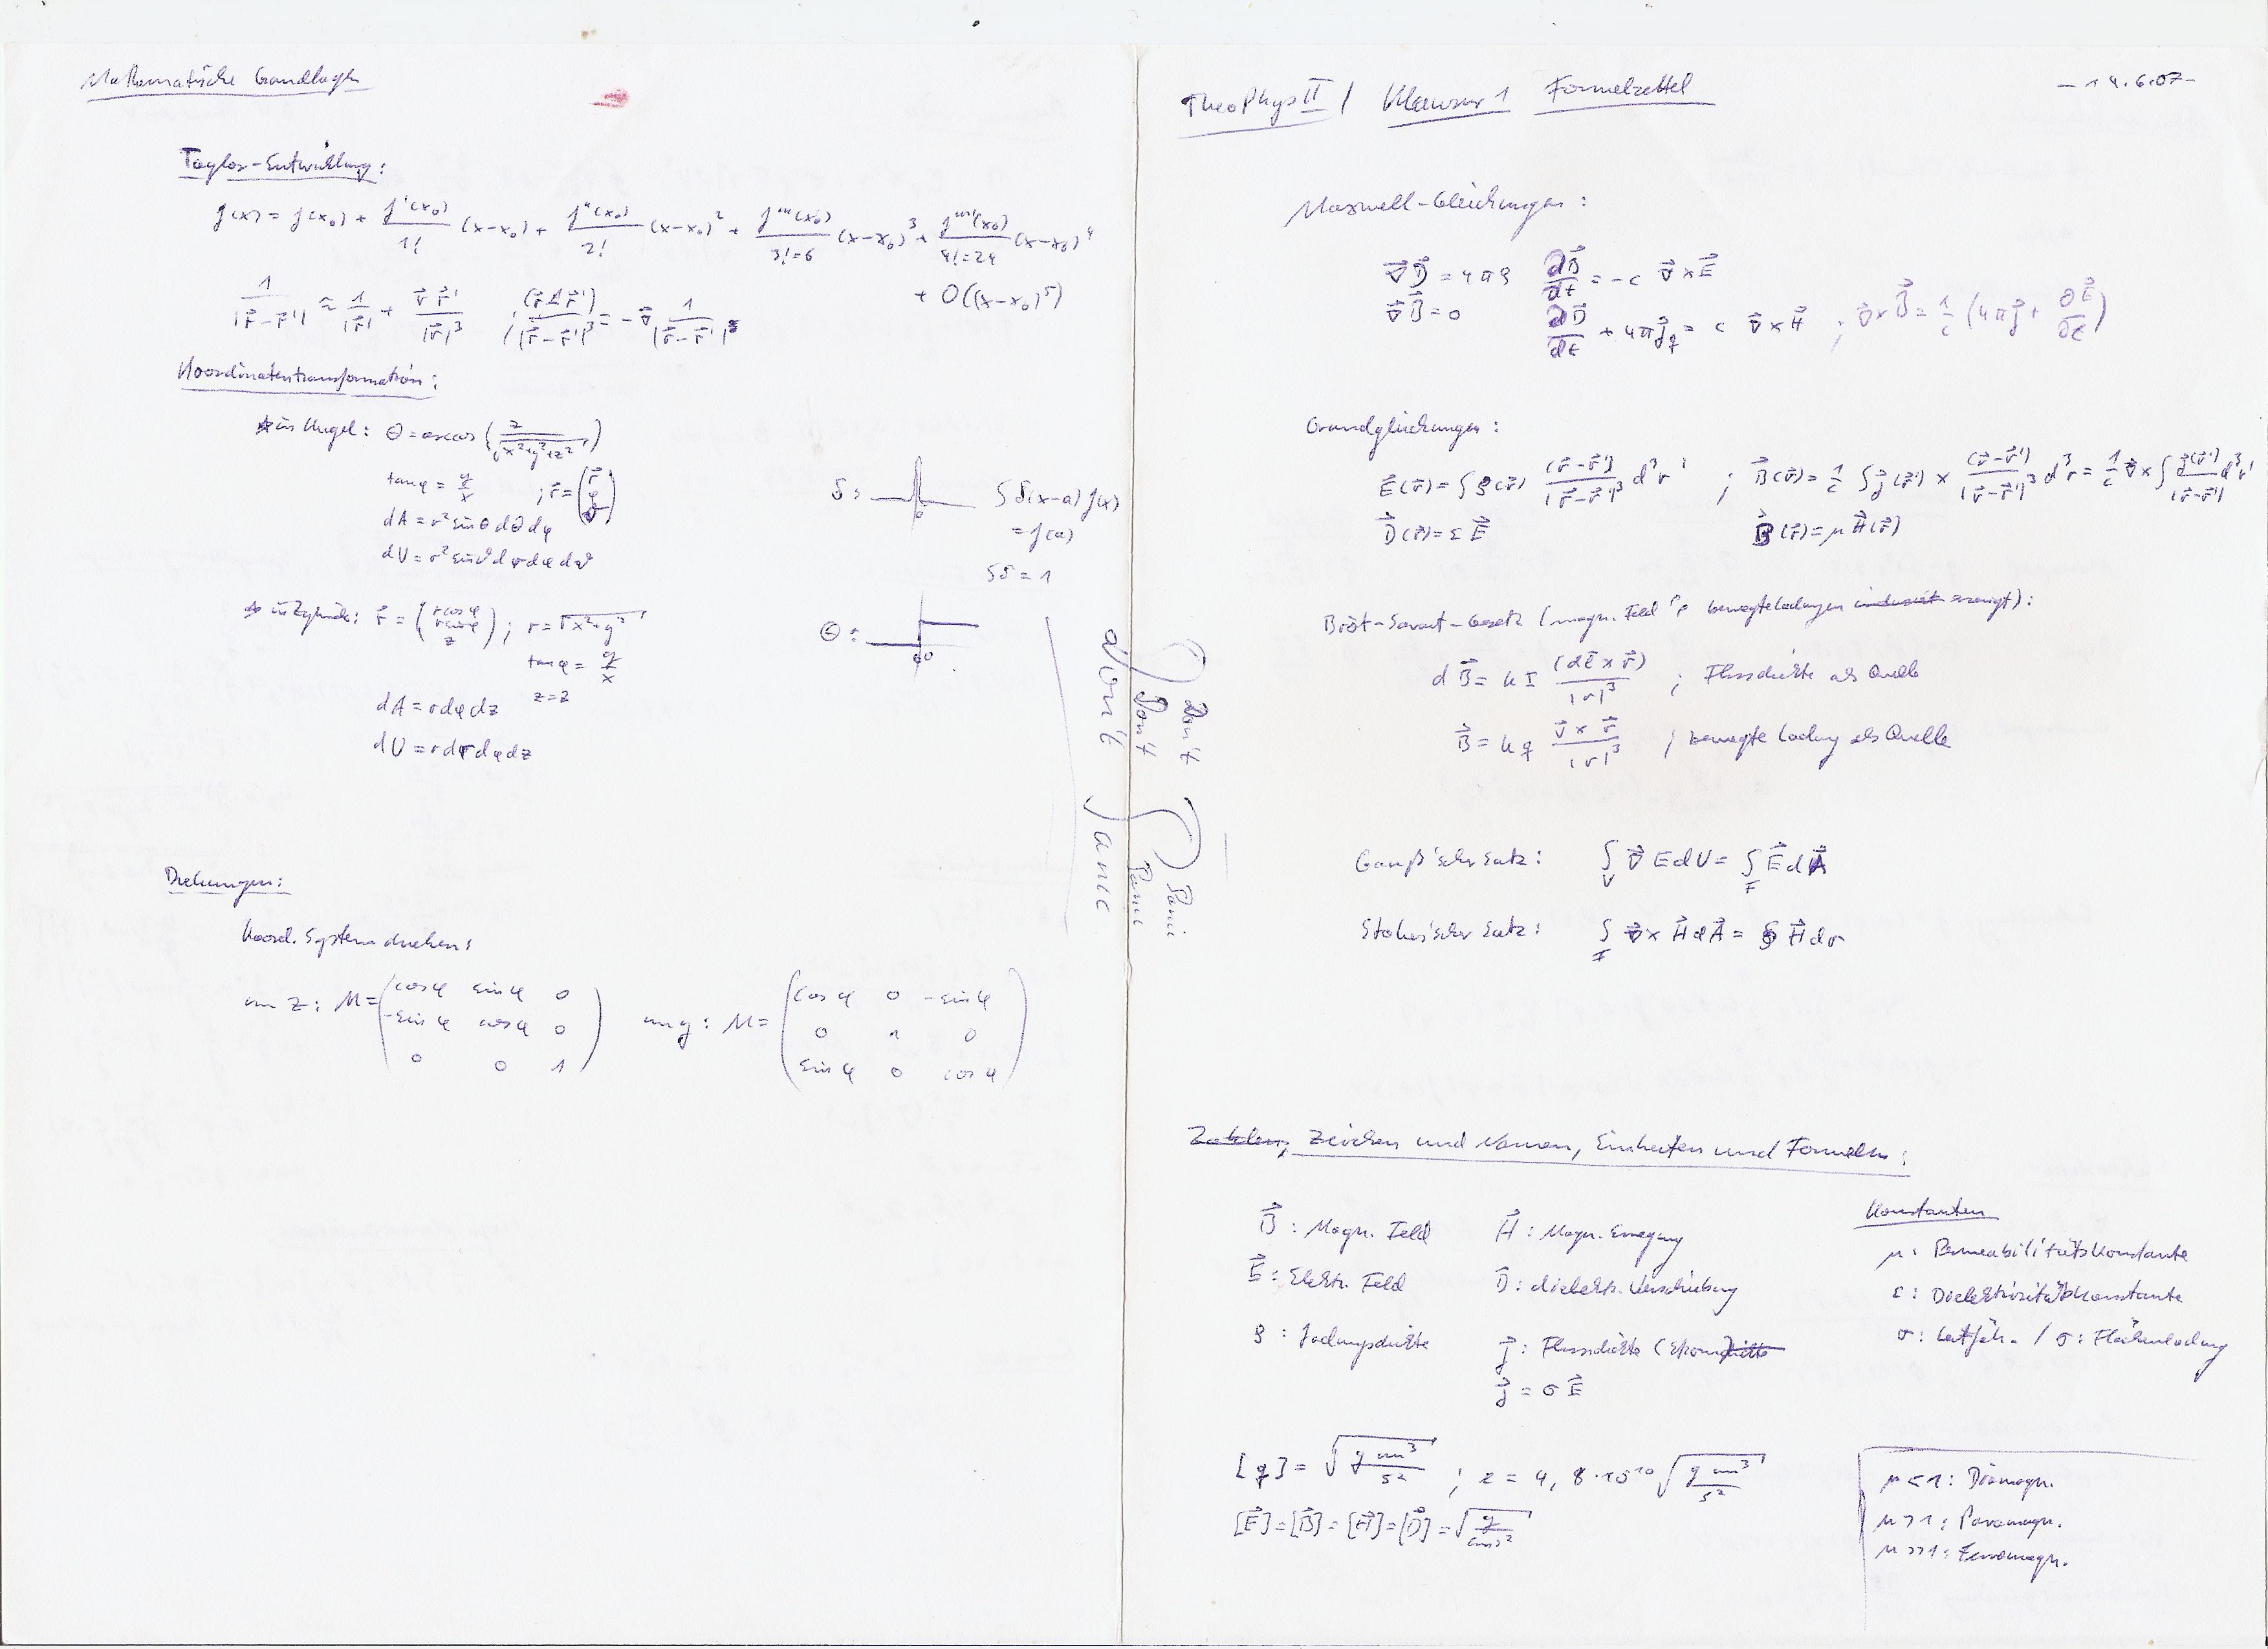 Mathematische Grundlagen
Taylor-Entwicklung:
f(x) = f(x₀) + f'(x₀)/1! (x-x₀) + f''(x₀)/2! (x-x₀)² + f'''(x₀)/3!=6 (x-x₀)³ + f''''(x₀)/4!=24 (x-x₀)⁴
+ O((x-x₀)⁵)
Koordinatentransformation:
in Kugel: Θ = arccos (z/√(x²+y²+z²))
tan φ = y/x
dA = r² sinθ dθ dφ
dV = r² sinϑ dr dφ dϑ
δ: ∫ δ(x-a) f(x)
= f(a)
∫δ = 1
in Zylinder: r⃗ = (r cos φ, r sin φ, z); r = √(x²+y²)
tan φ = y/x
z = z
dA = r dφ dz
dV = r dr dφ dz
Θ:
Drehungen:
Koord. System drehen:
um z: M = (cos φ sin φ 0
-sin φ cos φ 0
0 0 1)
um y: M = (cos φ 0 -sin φ
0 1 0
sin φ 0 cos φ)
don't Panic
Don't Panic
Don't Panic
TheoPhys II / Klausur 1 Formelzettel
- 14.6.07 -
Maxwell-Gleichungen:
∇⃗ D⃗ = 4πρ ∂B⃗/∂t = -c ∇⃗ × E⃗
∇⃗ B⃗ = 0 ∂D⃗/∂t + 4πj⃗_q = c ∇⃗ × H⃗ ; ∇⃗ × B⃗ = 1/c (4πj⃗ + ∂E⃗/∂t)
Grundgleichungen:
E⃗(r⃗) = ∫ρ(r⃗) (r⃗-r⃗')/|r⃗-r⃗'|³ d³r' ; B⃗(r⃗) = 1/c ∫ j⃗(r⃗') × (r⃗-r⃗')/|r⃗-r⃗'|³ d³r = 1/c ∇⃗ × ∫ j⃗(r⃗')/|r⃗-r⃗'| d³r'
D⃗(r⃗) = ε E⃗ B⃗(r⃗) = μ H⃗(r⃗)
Biot-Savart-Gesetz (magn. Feld bewegte Ladungen induziert erzeugt):
dB⃗ = k I (dl⃗ × r⃗)/|r|³ ; Flussdichte als Quelle
B⃗ = k q v⃗ × r⃗/|r|³ ; bewegte Ladung als Quelle
Gauß'scher Satz: ∫_V ∇⃗ E dV = ∫_F E⃗ dA⃗
Stokes'scher Satz: ∫_F ∇⃗ × H⃗ dA⃗ = ∮ H⃗ dr
Zahlen, Zeichen und Namen, Einheiten und Formeln:
B⃗: Magn. Feld H⃗: Magn. Erregung
E⃗: Elektr. Feld D⃗: dielektr. Verschiebung
ρ: Ladungsdichte j⃗: Flussdichte (Stromdichte
j⃗ = σ E⃗
Konstanten
μ: Permeabilitätskonstante
ε: Dielektrizitätskonstante
σ: Leitfäh. / σ: Flächenladung
[q] = √(g cm³/s²) ; e = 4,8·10¹⁰ √(g cm³/s²)
[E⃗] = [B⃗] = [H⃗] = [D⃗] = √(g/cm s²)
μ < 1: Diamagn.
μ > 1: Paramagn.
μ >> 1: Ferromagn.